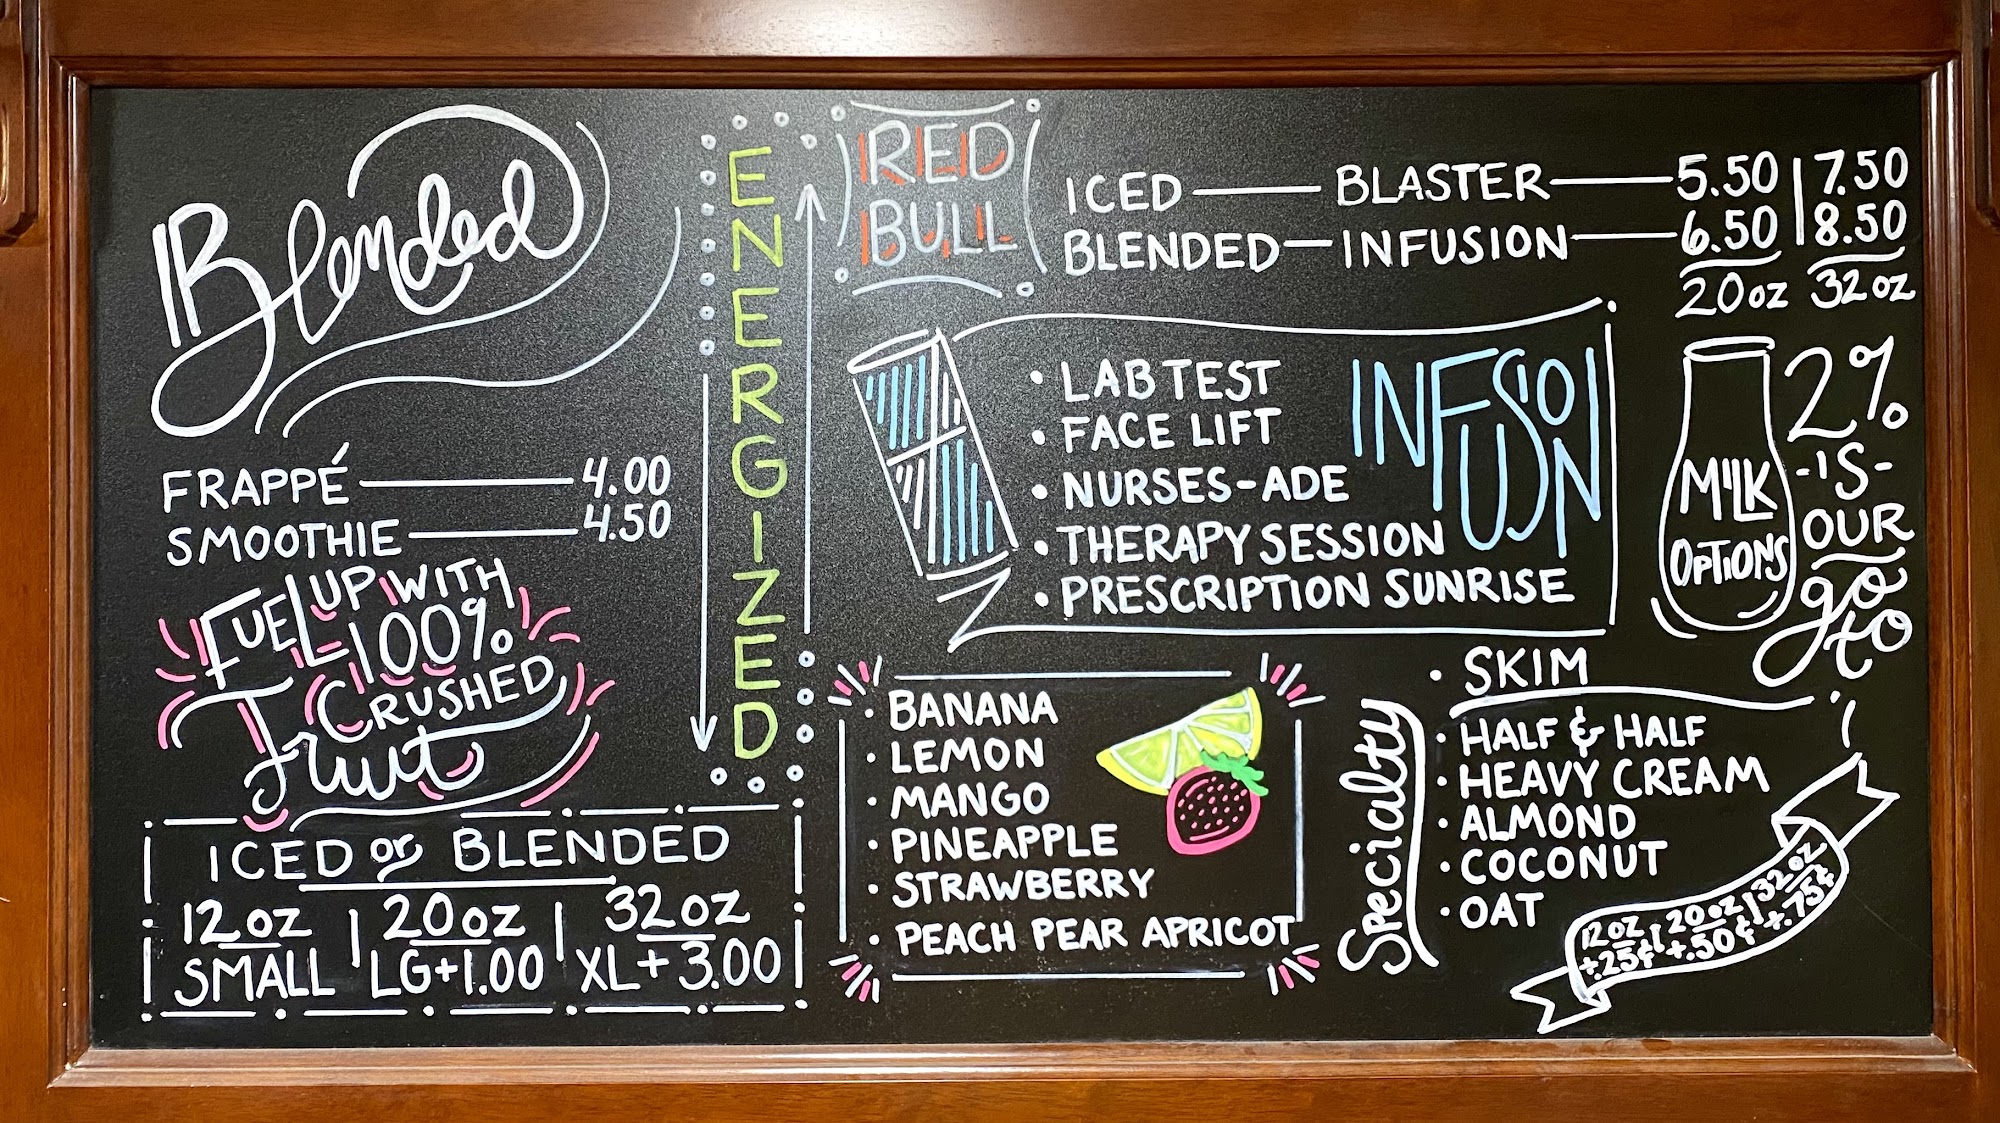 Blended
FRAPPÉ 4.00
SMOOTHIE 4.50
FUEL UP WITH
100%
CRUSHED
Fruit
ICED or BLENDED
12oz | 20oz | 32oz
SMALL | LG+1.00 | XL+3.00
ENERGIZED
RED
BULL
ICED — BLASTER — 5.50 | 7.50
BLENDED — INFUSION — 6.50 | 8.50
20oz 32oz
INFUSION
• LAB TEST
• FACE LIFT
• NURSES-ADE
• THERAPY SESSION
• PRESCRIPTION SUNRISE
• BANANA
• LEMON
• MANGO
• PINEAPPLE
• STRAWBERRY
• PEACH PEAR APRICOT
MILK
OPTIONS
2%
-IS-
OUR
go
to
• SKIM
Specialty
• HALF & HALF
• HEAVY CREAM
• ALMOND
• COCONUT
• OAT
12oz | 20oz | 32oz
+.25¢ +.50¢ +.75¢